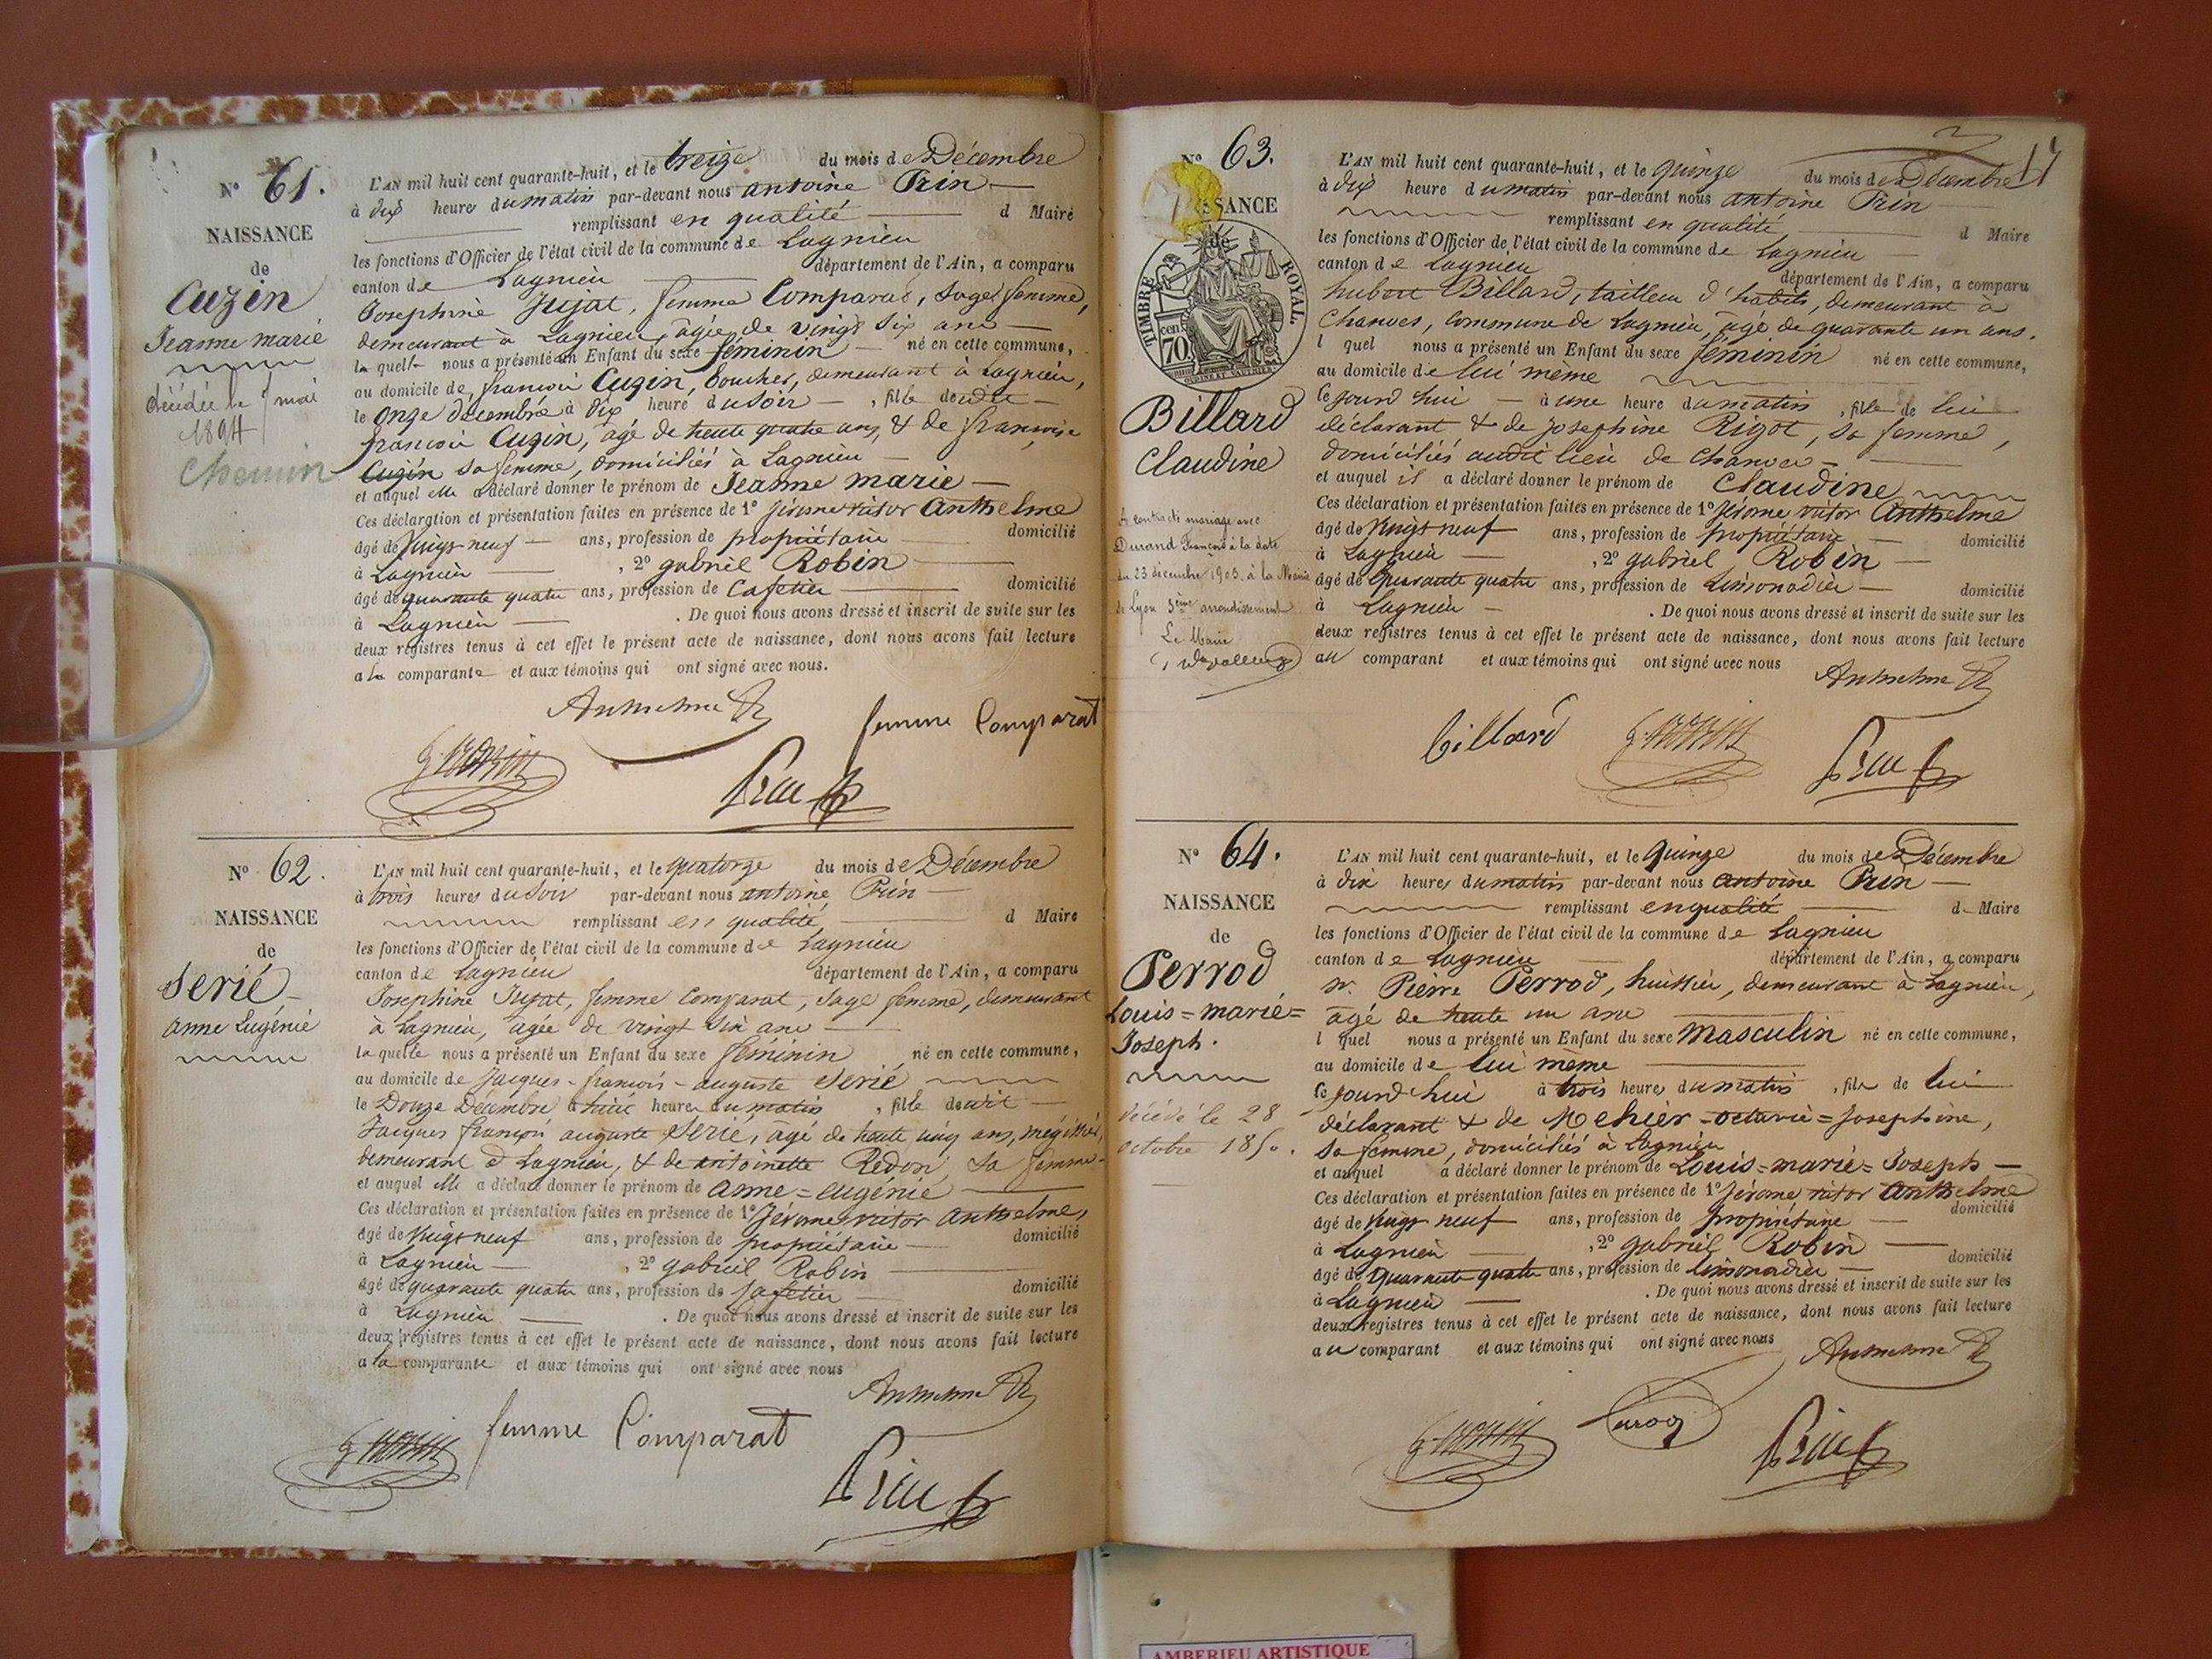 N° 61.
NAISSANCE
de
Cuzin
Jeanne marie
décédée le 7 mai
1894
Chemin
L'AN mil huit cent quarante-huit, et le treize du mois de Décembre
à dix heures du matin par-devant nous antoine Prin
remplissant en qualité d Maire
les fonctions d'Officier de l'état civil de la commune de Lagnieu
canton de Lagnieu département de l'Ain, a comparu
Josephine Jujat, femme Comparat, sage femme,
demeurant à Lagnieu, agée de vingt six ans
la quelle nous a présenté un Enfant du sexe féminin né en cette commune,
au domicile de françois Cuzin, boucher, demeurant à Lagnieu,
le onze décembre à dix heure du soir , fille de udit
françois Cuzin, agé de trente quatre ans, & de françoise
Cuzin sa femme, domiciliés à Lagnieu
et auquel elle a déclaré donner le prénom de Jeanne marie
Ces déclaration et présentation faites en présence de 1° Jérome victor Anthelme
âgé de vingt neuf ans, profession de propriétaire domicilié
à Lagnieu , 2° gabriel Robin
âgé de quarante quatre ans, profession de Cafetier domicilié
à Lagnieu . De quoi nous avons dressé et inscrit de suite sur les
deux registres tenus à cet effet le présent acte de naissance, dont nous avons fait lecture
a la comparante et aux témoins qui ont signé avec nous.
Anthelme V
femme Comparat
G. Robin
Prin
N° 62.
NAISSANCE
de
Serié
Anne Eugénie
L'AN mil huit cent quarante-huit, et le quatorze du mois de Décembre
à trois heures du soir par-devant nous antoine Prin
remplissant en qualité d Maire
les fonctions d'Officier de l'état civil de la commune de Lagnieu
canton de Lagnieu département de l'Ain, a comparu
Josephine Jujat, femme Comparat, sage femme, demeurant
à Lagnieu, agée de vingt six ans
la quelle nous a présenté un Enfant du sexe féminin né en cette commune,
au domicile de Jacques-francois-auguste Serié
le Douze Décembre à huit heures du matin , fille de udit
Jacques françois auguste Serié, agé de trente cinq ans, mégissier,
demeurant à Lagnieu, & de antoinette Redon, sa femme
et auquel elle a déclaré donner le prénom de anne=eugénie
Ces déclaration et présentation faites en présence de 1° Jérome victor anthelme,
âgé de vingt neuf ans, profession de propriétaire domicilié
à Lagnieu , 2° gabriel Robin
âgé de quarante quatre ans, profession de Cafetier domicilié
à Lagnieu . De quoi nous avons dressé et inscrit de suite sur les
deux registres tenus à cet effet le présent acte de naissance, dont nous avons fait lecture
a la comparante et aux témoins qui ont signé avec nous
Anthelme V
femme Comparat
G. Robin
Prin
17
N° 63.
NAISSANCE
de
TIMBRE ROYAL
70 cen
Billard
Claudine
A contracté mariage avec
Durand François à la date
du 23 décembre 1903 à la Mairie
de Lyon 3ème arrondissement
Le Maire
L'AN mil huit cent quarante-huit, et le quinze du mois de Décembre
à dix heure du matin par-devant nous antoine Prin
remplissant en qualité d Maire
les fonctions d'Officier de l'état civil de la commune de Lagnieu
canton de Lagnieu département de l'Ain, a comparu
hubert Billard, tailleur d'habits, demeurant à
Chanves, commune de Lagnieu, agé de quarante un ans.
l quel nous a présenté un Enfant du sexe féminin né en cette commune,
au domicile de lui même
cejourd'hui à une heure du matin , fille de lui
déclarant & de josephine Rigot, sa femme,
domiciliés audit lieu de Chanves
et auquel il a déclaré donner le prénom de Claudine
Ces déclaration et présentation faites en présence de 1° Jérome victor Anthelme
âgé de vingt neuf ans, profession de propriétaire domicilié
à Lagnieu , 2° gabriel Robin
âgé de quarante quatre ans, profession de Limonadier domicilié
à Lagnieu . De quoi nous avons dressé et inscrit de suite sur les
deux registres tenus à cet effet le présent acte de naissance, dont nous avons fait lecture
au comparant et aux témoins qui ont signé avec nous
Anthelme V
billard
G. Robin
Prin
N° 64.
NAISSANCE
de
Perrod
Louis=marie=
Joseph.
décédé le 28
octobre 1850.
L'AN mil huit cent quarante-huit, et le quinze du mois de Décembre
à dix heures du matin par-devant nous antoine Prin
remplissant en qualité d Maire
les fonctions d'Officier de l'état civil de la commune de Lagnieu
canton de Lagnieu département de l'Ain, a comparu
Sr. Pierre Perrod, huissier, demeurant à Lagnieu,
agé de trente un ans
l quel nous a présenté un Enfant du sexe masculin né en cette commune,
au domicile de lui même
cejourd'hui à trois heures du matin , fils de lui
déclarant & de Mehier=octavie=Josephine,
sa femme, domiciliés à Lagnieu
et auquel a déclaré donner le prénom de Louis=marie=Joseph
Ces déclaration et présentation faites en présence de 1° Jérome victor Anthelme
âgé de vingt neuf ans, profession de propriétaire domicilié
à Lagnieu , 2° gabriel Robin
âgé de quarante quatre ans, profession de limonadier domicilié
à Lagnieu . De quoi nous avons dressé et inscrit de suite sur les
deux registres tenus à cet effet le présent acte de naissance, dont nous avons fait lecture
au comparant et aux témoins qui ont signé avec nous
Anthelme V
G. Robin
Perrod
Prin
AMBERIEU ARTISTIQUE